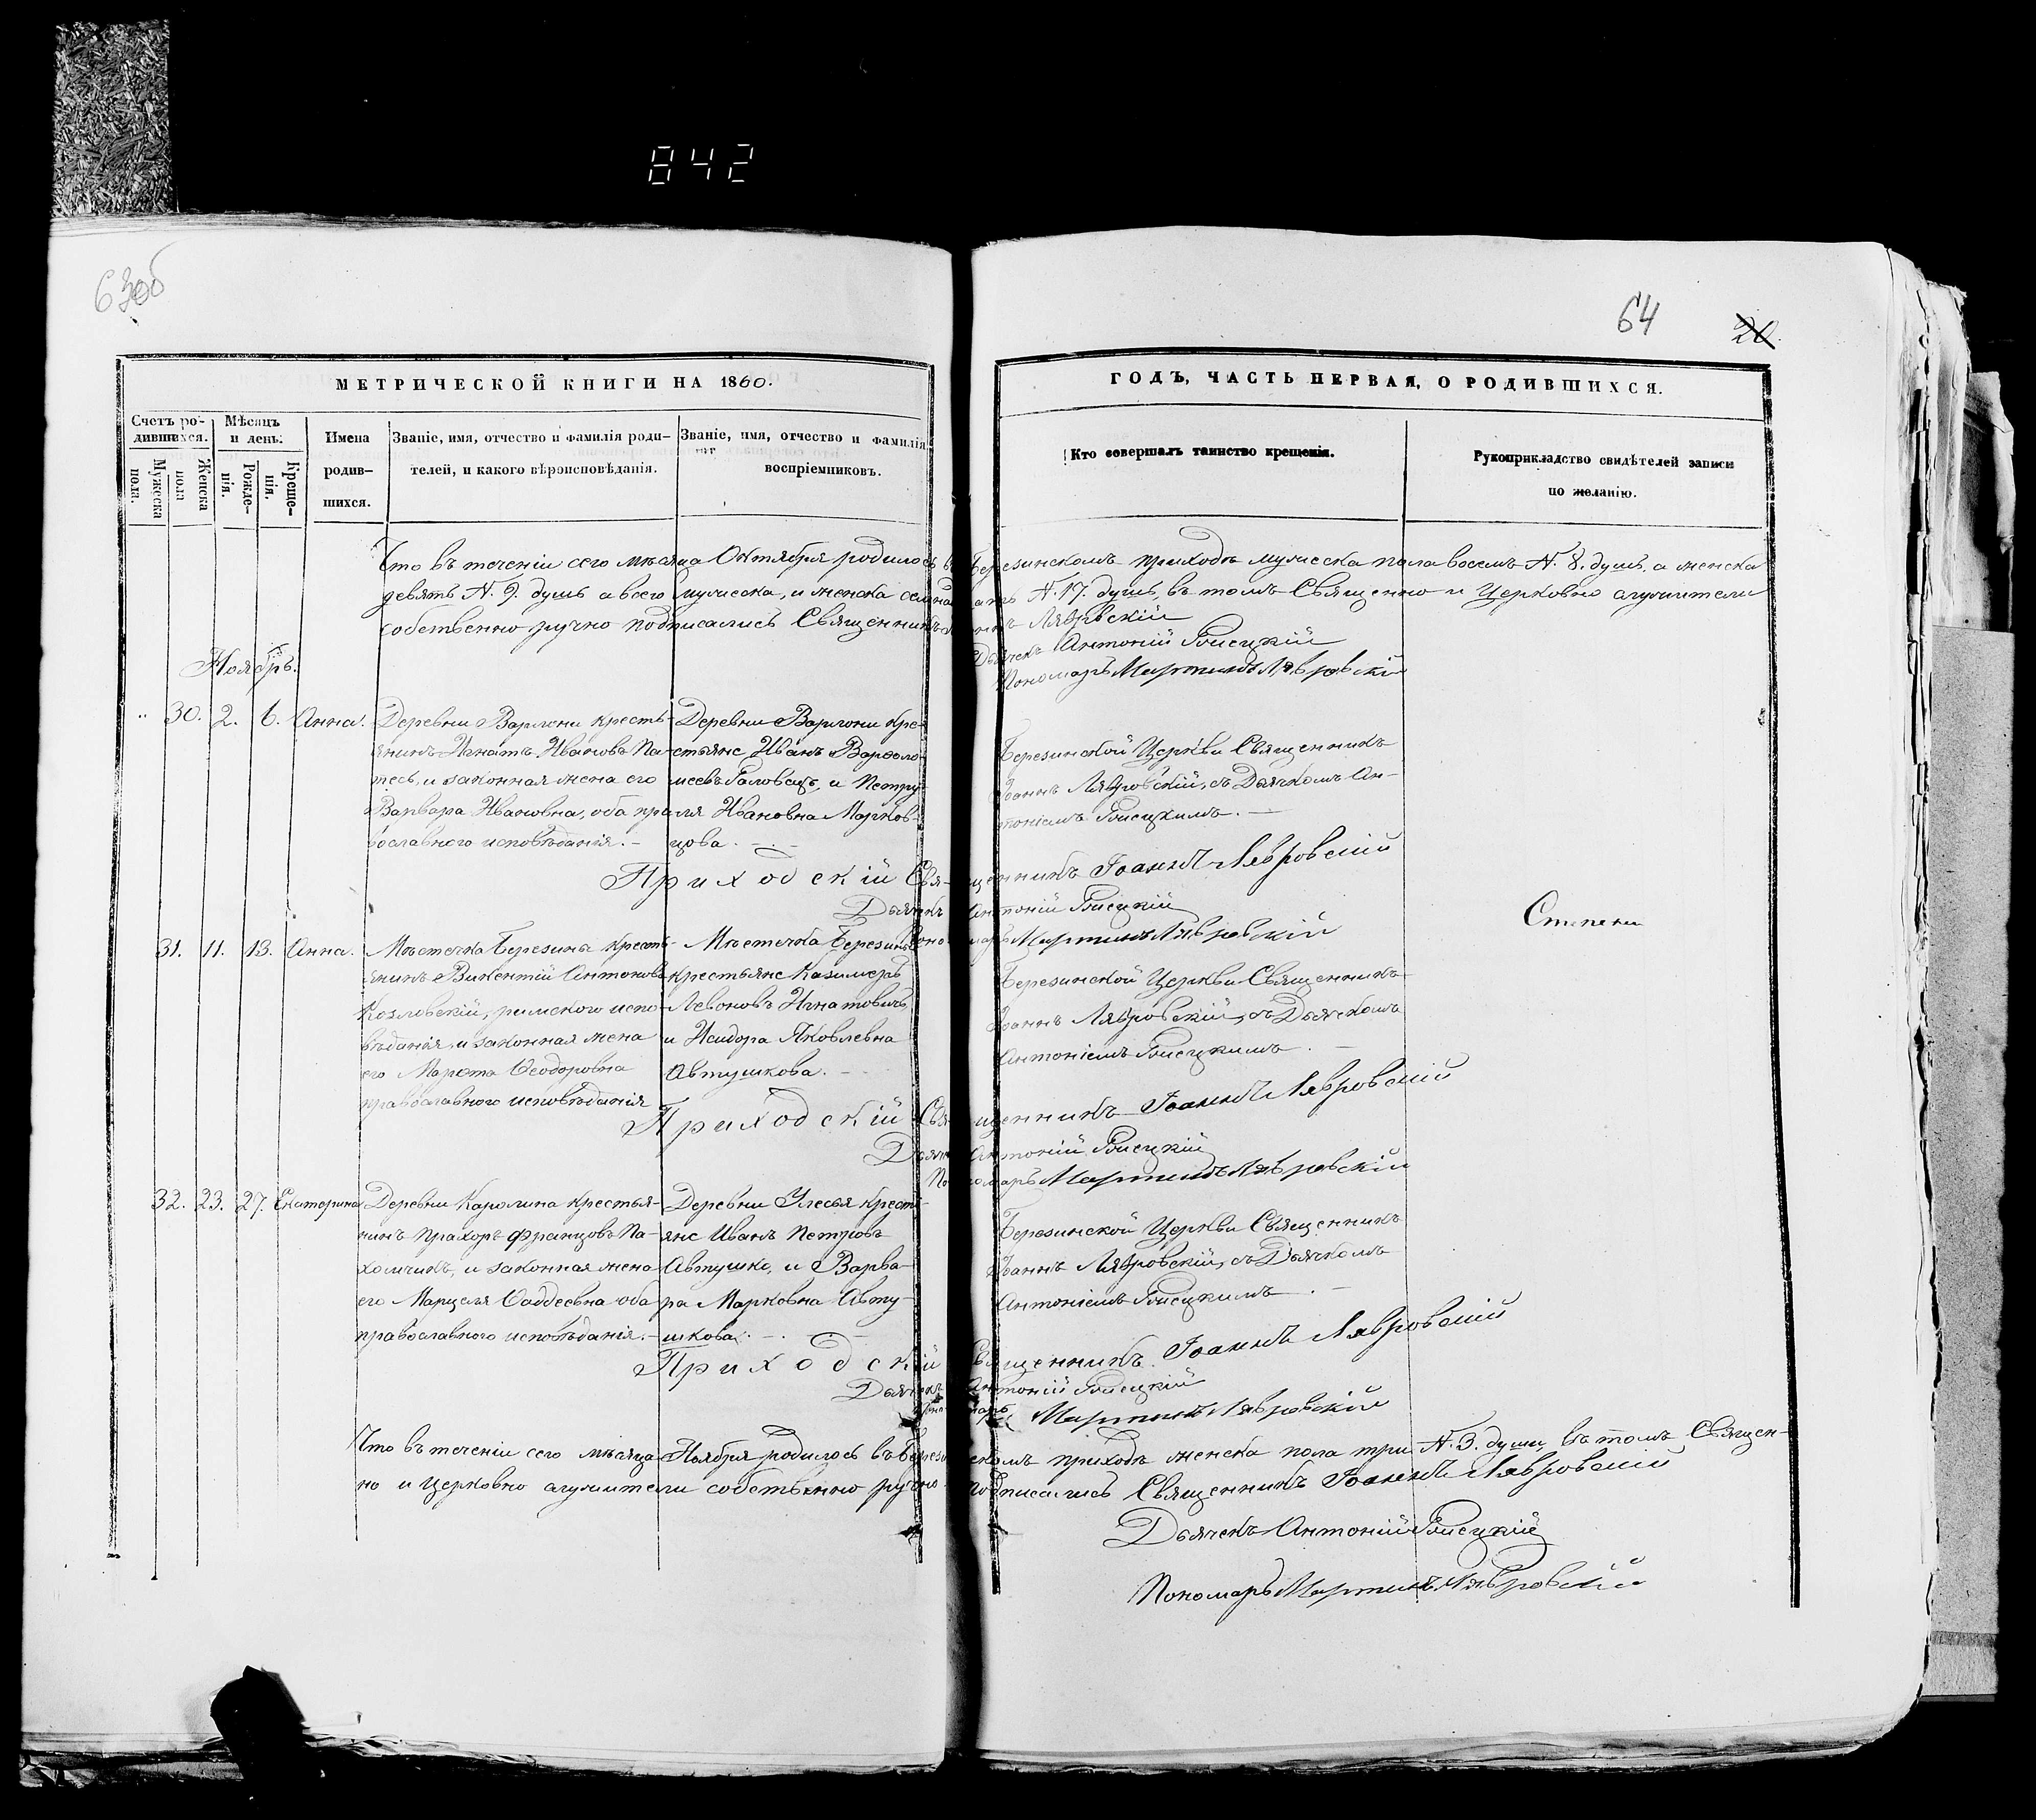 842
63об
64
20.
МЕТРИЧЕСКОЙ КНИГИ НА 1860.
ГОДЪ, ЧАСТЬ ПЕРВАЯ, О РОДИВШИХСЯ.
Счетъ ро-
дившихся.
Мужеска
пола.
Женска
пола
Мѣсяцъ
и день.
Рожде-
нія.
Креще-
нія.
Имена
родив-
шихся.
Званіе, имя, отчество и фамилія роди-
телей, и какого вѣроисповѣданія.
Званіе, имя, отчество и фамилія
воспріемниковъ.
Кто совершалъ таинство крещенія.
Рукоприкладство свидѣтелей записи
по желанію.
Что въ теченіи сего мѣсяца Октября родилось въ Березинскомъ приходѣ мужеска пола восемь N. 8. душъ, а женска
девять N. 9. душъ а всего мужеска, и женска семнадцать N. 17. душъ, въ томъ Священно и Церковно служители
собственно ручно подписались Священникъ Іоаннъ Лявровскій
Дьячекъ Антоній
Пономарь Мартинъ Лявровскій
Ноябрь.
30. 2. 6. Анна.
Деревни Варлони кресть-
янинъ Игнатъ Ивановъ Па-
и законная жена его
Варвара Ивановна, оба пра-
вославного исповѣданія.-
Деревни Варлони кре-
стьяне Иванъ Варѳоло-
меевъ и Петру-
ля Ивановна Марков-
цова.
Березинской Церкви Священникъ
Іоаннъ Лявровскій, съ Дьячкомъ Ан-
тоніемъ
Приходскій Священникъ Іоаннъ Лявровскій
Дьячекъ Антоній
Пономарь Мартинъ Лявровскій
Степени
31. 11. 13. Анна.
Мѣстечка Березина кресть-
янинъ Викентій Антоновъ
Козловскій, римского испо-
вѣданія, и законная жена
его Марѳта Ѳеодоровна
православного исповѣданія
Мѣстечка Березина
крестьяне Казимеръ
Левоновъ Игнатовичъ
и Исидора Яковлевна
Автушкова.-
Березинской Церкви Священникъ
Іоаннъ Лявровскій, съ Дьячкомъ
Антоніемъ
Приходскій Священникъ Іоаннъ Лявровскій
Дьячекъ Антоній
Пономарь Мартинъ Лявровскій
32. 23. 27. Екатерина
Деревни Каролина крестья-
нинъ Прахоръ Францовъ Па-
хомчикъ, и законная жена
его Марцеля Ѳаддеевна оба
православного исповѣданія.-
Деревни Улесья кресть-
яне Иванъ Петровъ
Автушко, и Варва-
ра Марковна Авту-
шкова.
Березинской Церкви Священникъ
Іоаннъ Лявровскій, съ Дьячкомъ
Антоніемъ
Приходскій Священникъ Іоаннъ Лявровскій
Дьячекъ Антоній
Пономарь Мартинъ Лявровскій
Что въ теченіи сего мѣсяца Ноября родилось въ Березинскомъ приходѣ женска пола три N. 3. души, въ томъ Священ-
но и Церковно служители собственно ручно подписались Священникъ Іоаннъ Лявровскій
Дьячекъ Антоній
Пономарь Мартинъ Лявровскій